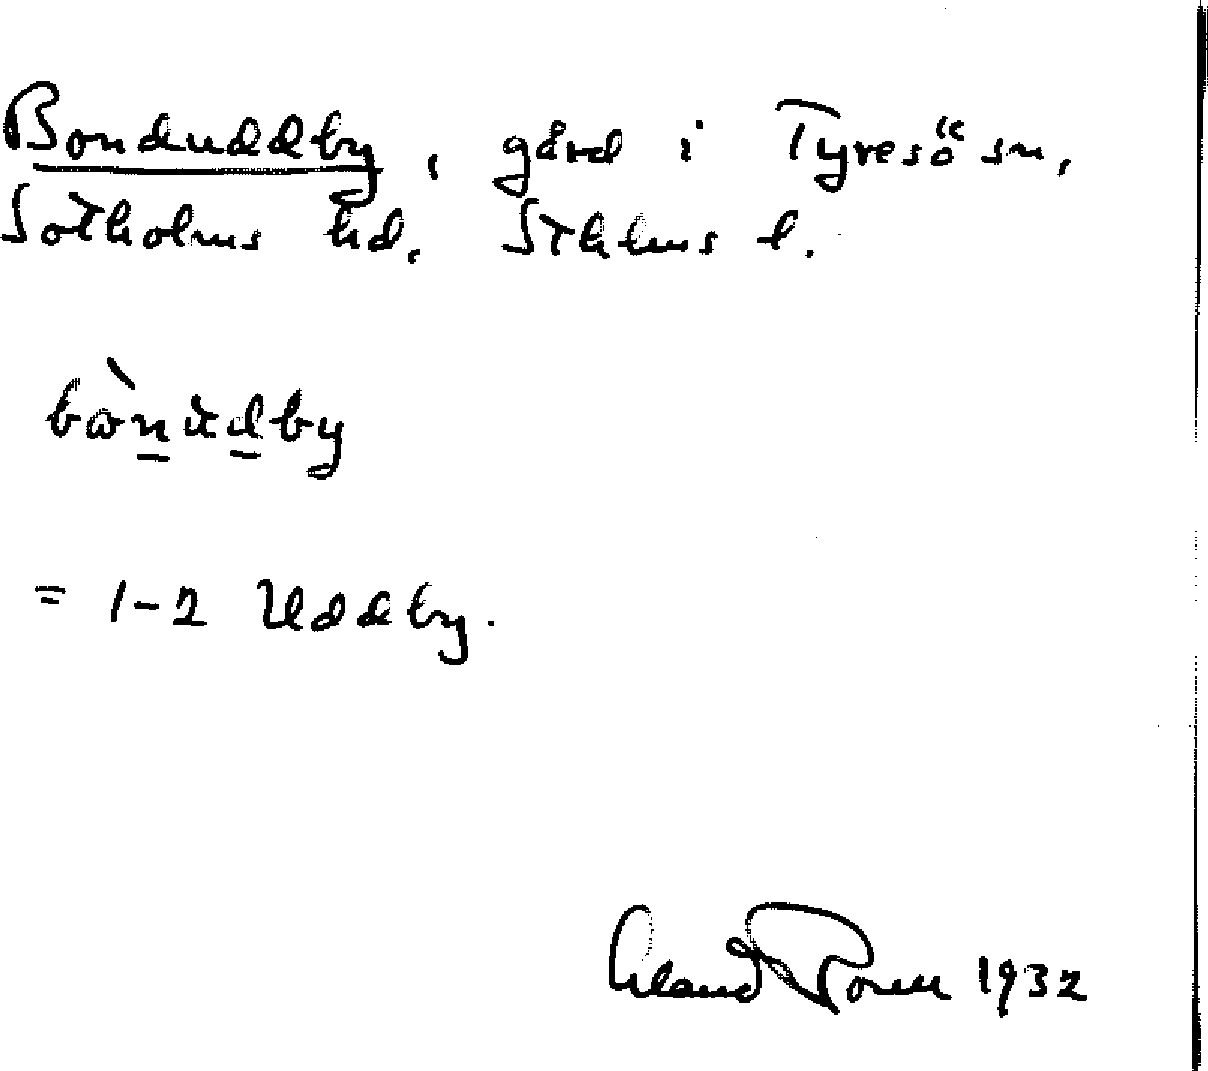 Bonduddby, gård i Tyresö sn,
Sotholms hd, Sthlms l.
bònùdby
= 1-2 Uddby.
Erland Rosell 1932